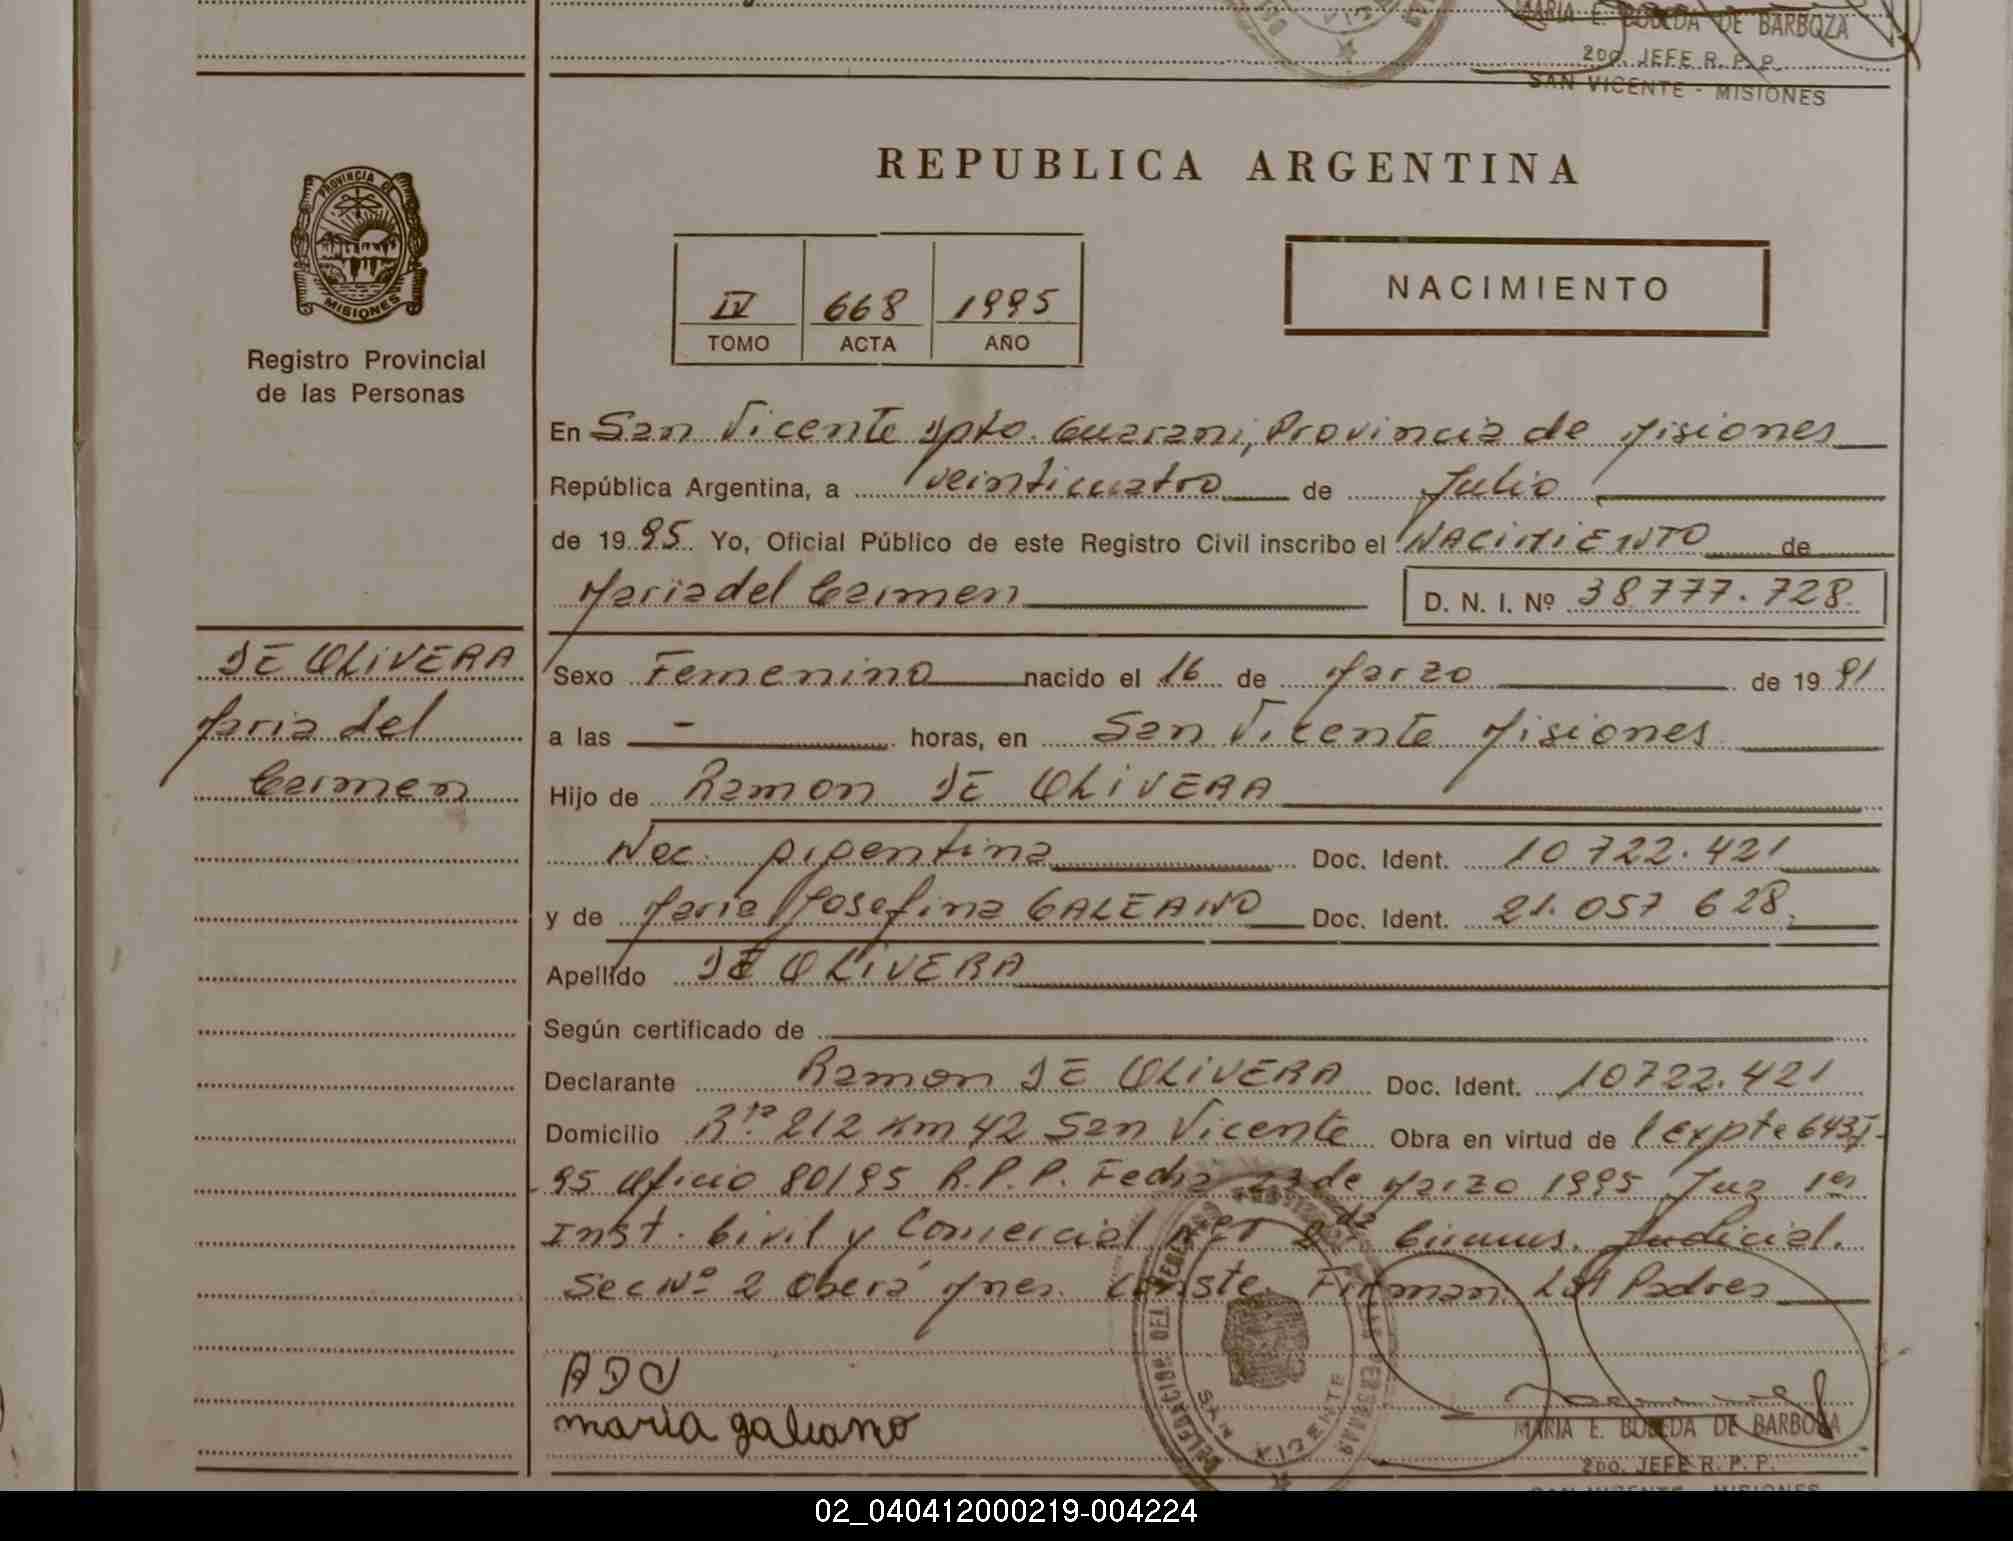 MARIA E. BOBEDA DE BARBOZA
2DO. JEFE R. P. P.
SAN VICENTE - MISIONES
PROVINCIA DE
MISIONES
Registro Provincial
de las Personas
REPUBLICA ARGENTINA
IV 668 1995
TOMO ACTA AÑO
NACIMIENTO
En San Vicente Dpto. Guarani, Provincia de Misiones
República Argentina, a veinticuatro de Julio
de 1995 Yo, Oficial Público de este Registro Civil inscribo el NACIMIENTO de
Maria del Carmen D. N. I. Nº 38.777.728
DE OLIVERA
Maria del
Carmen
Sexo Femenino nacido el 16 de Marzo de 1991
a las - horas, en San Vicente Misiones
Hijo de Ramon DE OLIVERA
Nac. Argentina Doc. Ident. 10722.421
y de Maria Josefina GALEANO Doc. Ident. 21.057 628
Apellido DE OLIVERA
Según certificado de
Declarante Ramon DE OLIVERA Doc. Ident. 10722.421
Domicilio Rta 212 Km 42 San Vicente Obra en virtud de l expte
95 Oficio 80/95 R.P.P. Fecha 23 de Marzo 1995 Juz 1era
Inst. Civil y Comercial 2da Judicial.
Sec Nº 2 Oberá Mnes. Conste. Firman Los Padres
ADO
maria galeano
SAN VICENTE
MARIA E. BOBEDA DE BARBOZA
2DO. JEFE R. P. P.
SAN VICENTE - MISIONES
02_040412000219-004224